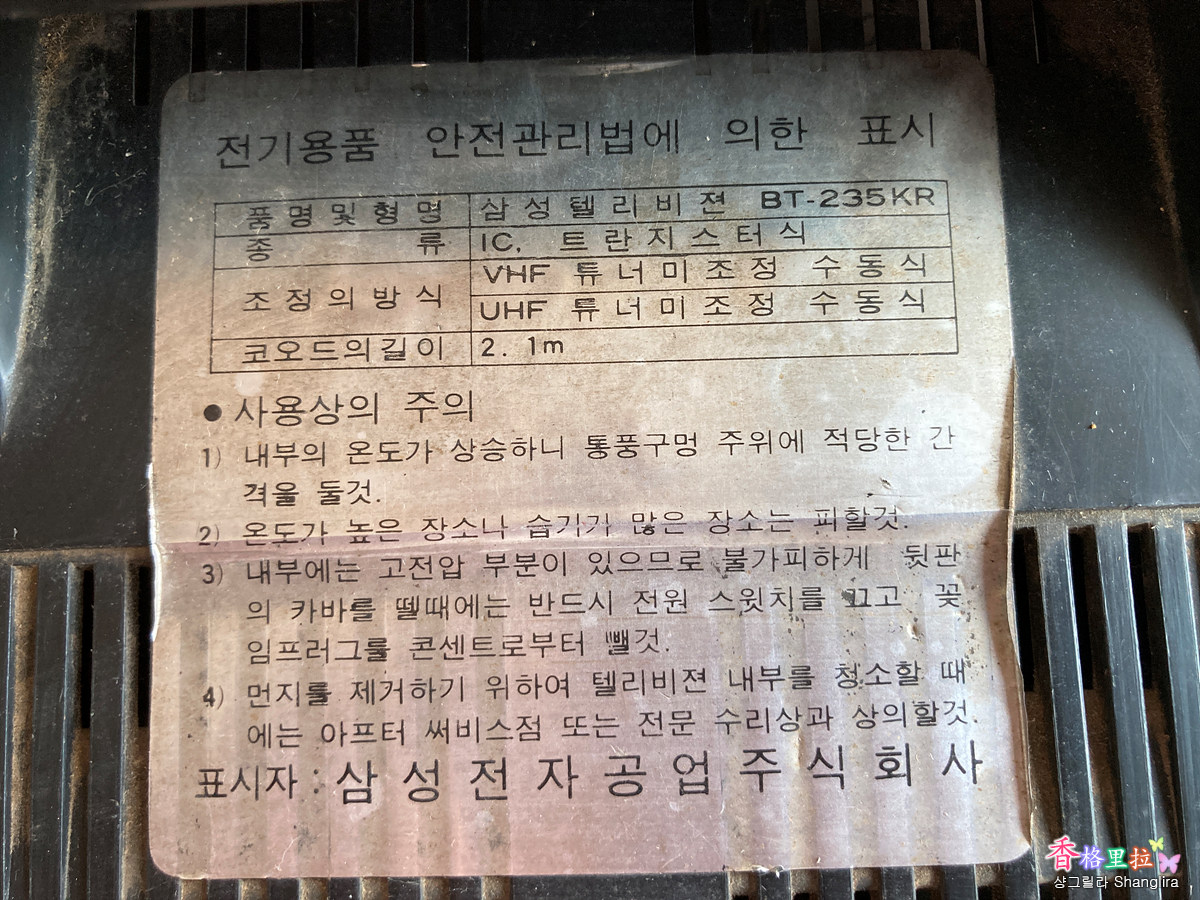 전기용품 안전관리법에 의한 표시
품명및형명 삼성텔리비젼 BT-235KR
종류 IC, 트란지스터식
조정의방식 VHF 튜너미조정 수동식
UHF 튜너미조정 수동식
코오드의길이 2.1m
● 사용상의 주의
1) 내부의 온도가 상승하니 통풍구멍 주위에 적당한 간
격을 둘것.
2) 온도가 높은 장소나 습기가 많은 장소는 피할것.
3) 내부에는 고전압 부분이 있으므로 불가피하게 뒷판
의 카바를 뗄때에는 반드시 전원 스윗치를 끄고 꽂
임프러그를 콘센트로부터 뺄것.
4) 먼지를 제거하기 위하여 텔리비젼 내부를 청소할 때
에는 아프터 써비스점 또는 전문 수리상과 상의할것.
표시자 : 삼성전자공업주식회사
香格里拉
샹그릴라 Shangrira